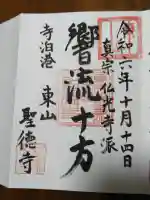 令和六年十月十四日
真宗仏光寺派
響流十方
寺泊港 東山
聖徳寺